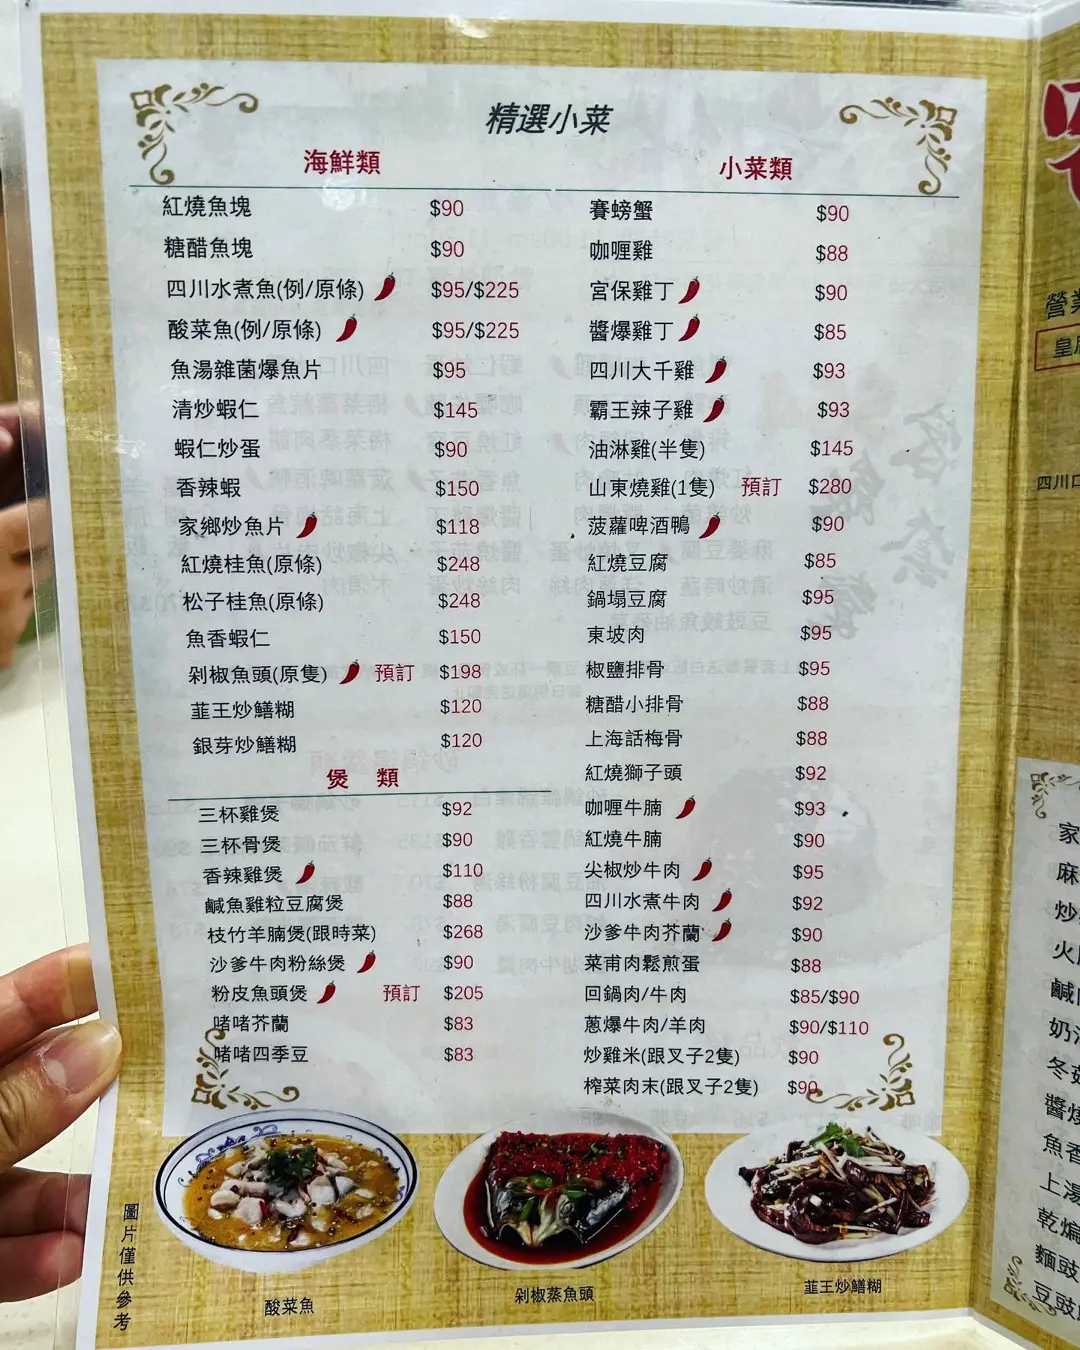 精選小菜
海鮮類
紅燒魚塊 $90
糖醋魚塊 $90
四川水煮魚(例/原條) $95/$225
酸菜魚(例/原條) $95/$225
魚湯雜菌爆魚片 $95
清炒蝦仁 $145
蝦仁炒蛋 $90
香辣蝦 $150
家鄉炒魚片 $118
紅燒桂魚(原條) $248
松子桂魚(原條) $248
魚香蝦仁 $150
剁椒魚頭(原隻) 預訂 $198
韮王炒鱔糊 $120
銀芽炒鱔糊 $120
煲 類
三杯雞煲 $92
三杯骨煲 $90
香辣雞煲 $110
鹹魚雞粒豆腐煲 $88
枝竹羊腩煲(跟時菜) $268
沙爹牛肉粉絲煲 $90
粉皮魚頭煲 預訂 $205
啫啫芥蘭 $83
啫啫四季豆 $83
小菜類
賽螃蟹 $90
咖喱雞 $88
宮保雞丁 $90
醬爆雞丁 $85
四川大千雞 $93
霸王辣子雞 $93
油淋雞(半隻) $145
山東燒雞(1隻) 預訂 $280
菠蘿啤酒鴨 $90
紅燒豆腐 $85
鍋塌豆腐 $95
東坡肉 $95
椒鹽排骨 $95
糖醋小排骨 $88
上海話梅骨 $88
紅燒獅子頭 $92
咖喱牛腩 $93
紅燒牛腩 $90
尖椒炒牛肉 $95
四川水煮牛肉 $92
沙爹牛肉芥蘭 $90
菜甫肉鬆煎蛋 $88
回鍋肉/牛肉 $85/$90
蔥爆牛肉/羊肉 $90/$110
炒雞米(跟叉子2隻) $90
榨菜肉末(跟叉子2隻) $90
圖片僅供參考
酸菜魚
剁椒蒸魚頭
韮王炒鱔糊
營業
皇
四川口
家
麻
炒
火
鹹
奶
冬菇
醬燒
魚香
上湯
乾煸
麵豉
豆豉